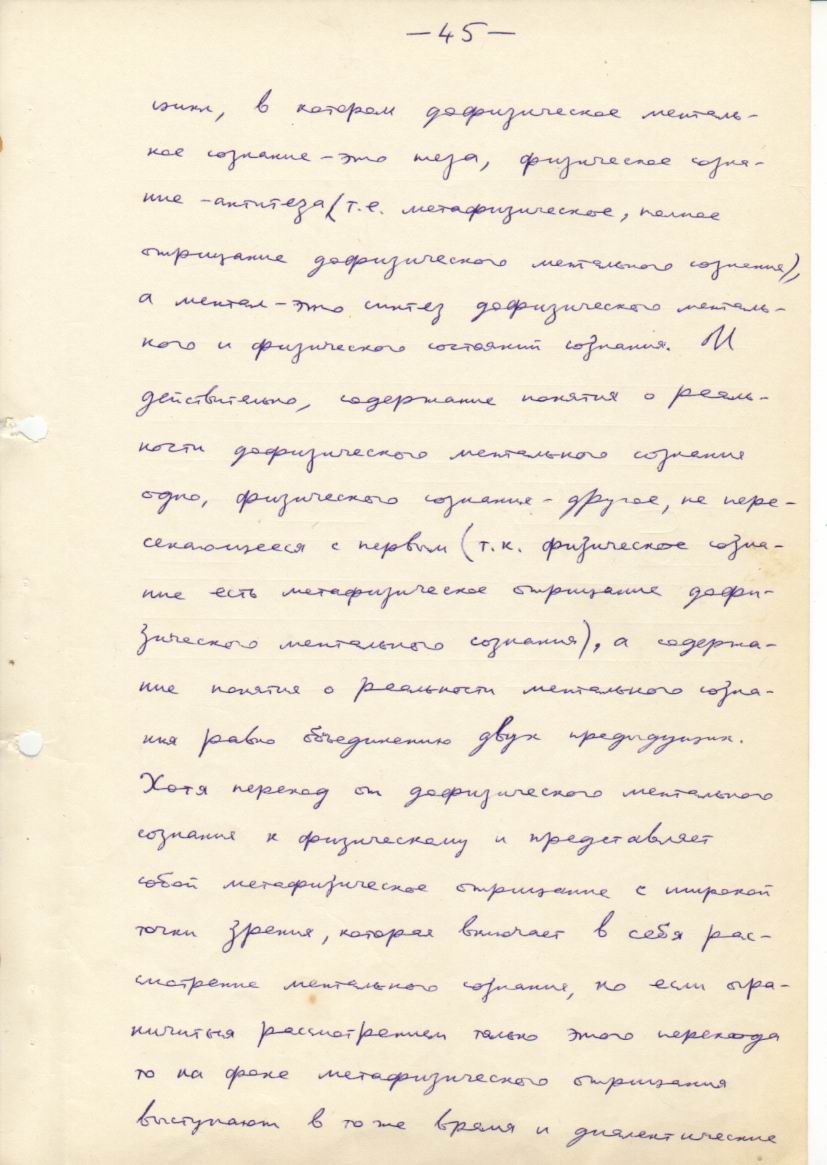 —45—
цикл, в котором дофизическое менталь-
ное сознание – это теза, физическое созна-
ние – антитеза (т.е. метафизическое, полное
отрицание дофизического ментального сознания),
а ментал – это синтез дофизического менталь-
ного и физического состояний сознания. И
действительно, содержание понятия о реаль-
ности дофизического ментального сознания
одно, физического сознания – другое, не пере-
секающееся с первым (т.к. физическое созна-
ние есть метафизическое отрицание дофи-
зического ментального сознания), а содержа-
ние понятия о реальности ментального созна-
ния равно объединению двух предыдущих.
Хотя переход от дофизического ментального
сознания к физическому и представляет
собой метафизическое отрицание с широкой
точки зрения, которая включает в себя рас-
смотрение ментального сознания, но если огра-
ничиться рассмотрением только этого перехода
то на фоне метафизического отрицания
выступают в то же время и диалектические